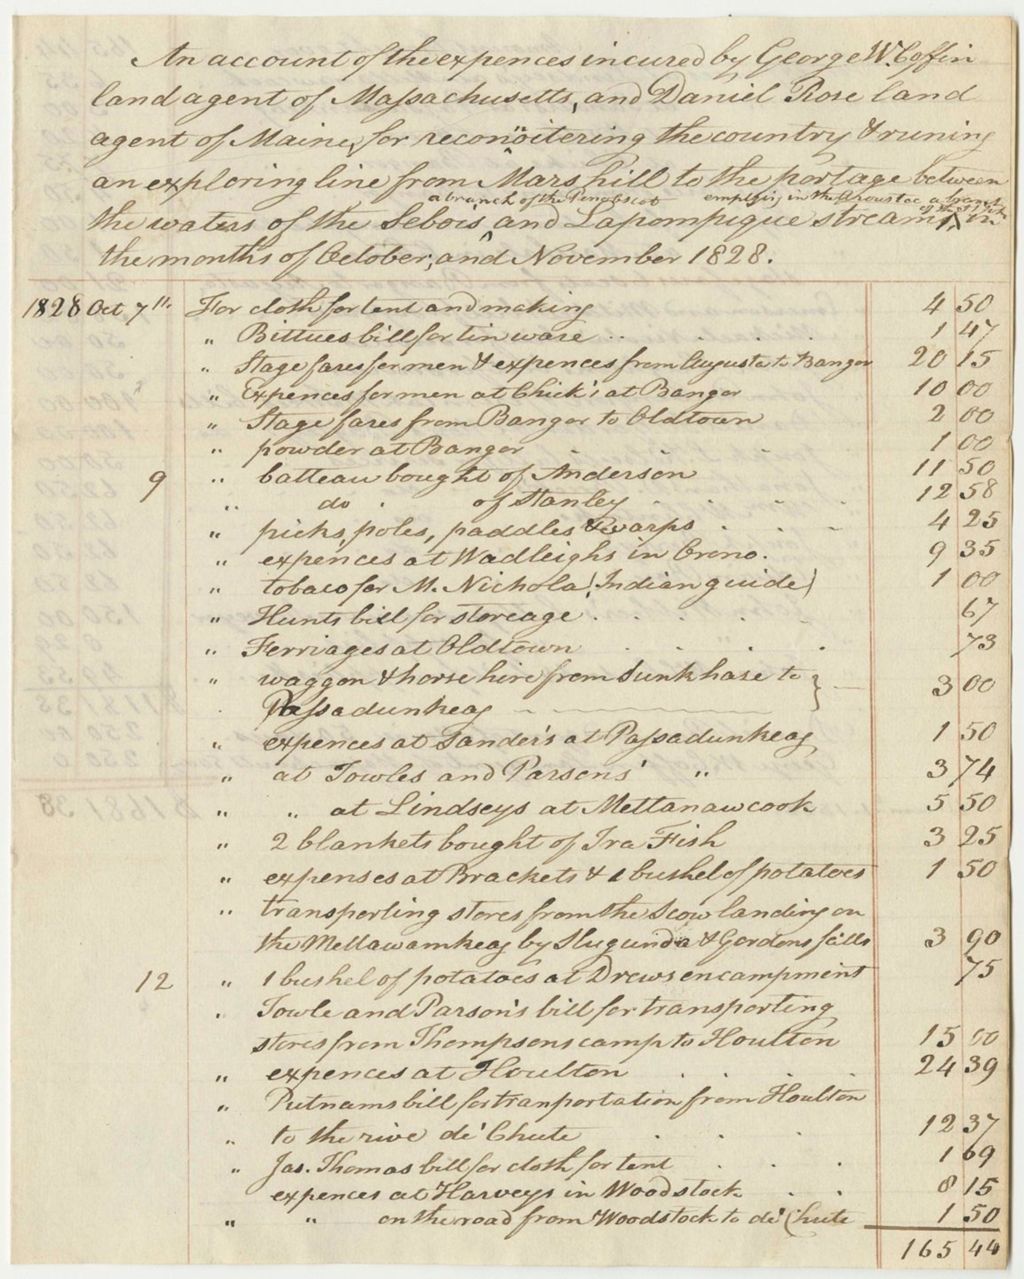 An account of the expences incured by George W. Coffin
land agent of Massachusetts, and Daniel Rose land
agent of Maine, for reconoitering the country & runing
an exploring line from Mars hill to the portage between
a branch of the Penobscot emptying in the Aroostoc a branch
of the St John
the waters of the Sebois and Lapompique streams, in
the months of October, and November 1828.
1828 Oct 7th For cloth for tent and making 4 50
" Bittues bill for tin ware 1 47
" Stage fares for men & expences from Augusta to Bangor 20 15
" Expences for men at Chick's at Bangor 10 00
" Stage fares from Bangor to Oldtown 2 00
" powder at Bangor 1 00
9 " batteau bought of Anderson 11 50
" do. of Stanley 12 58
" picks, poles, paddles & warps 4 25
" expences at Wadleighs in Orono. 9 35
" tobaco for M. Nichola (Indian guide) 1 00
" Hunts bill for storeage 67
" Ferriages at Oldtown 73
" waggon & horse hire from Sunkhase to }
Passadunkeag 3 00
" expences at Sander's at Passadunkeag 1 50
" at Towles and Parsons' " 3 74
" " at Lindseys at Mettanawcook 5 50
" 2 blankets bought of Ira Fish 3 25
" expenses at Brackets & 1 bushel of potatoes 1 50
" transporting stores from the Scow landing on
the Mettawamkeag by Slugunda & Gordons falls 3 90
12 " 1 bushel of potatoes at Drews encampment 75
" Towle and Parson's bill for transporting
stores from Thompsons camp to Houlton 15 00
" expences at Houlton 24 39
" Putnams bill for tranportation from Houlton
" to the rive de Chute 12 37
" Jas. Thomas bill for cloth for tent 1 69
expences at Harveys in Woodstock 8 15
" " on the road from Woodstock to de Chute 1 50
165 44